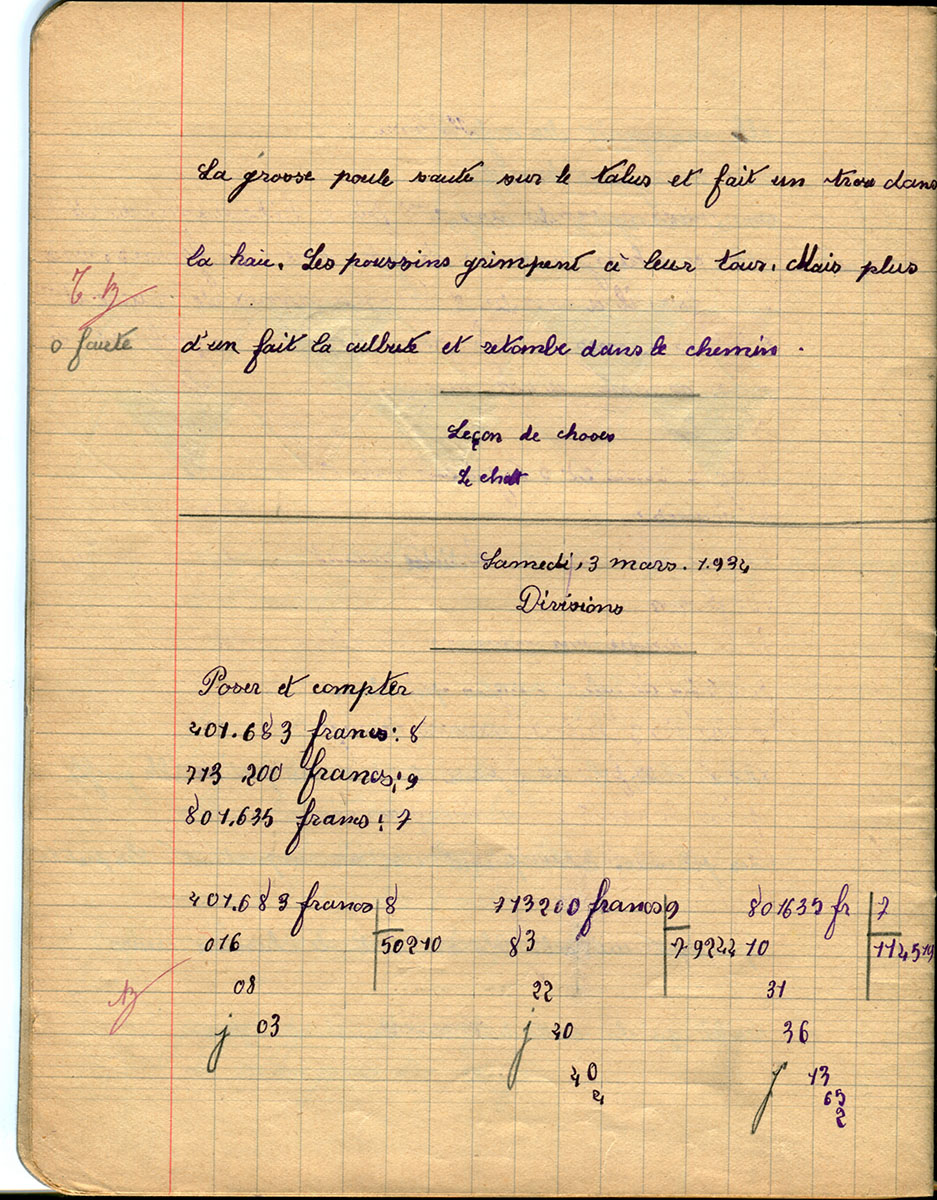 La grosse poule saute sur le talus et fait un trou dans
la haie. Les poussins grimpent à leur tour. Mais plus
T.B
0 faute
d'un fait la culbute et retombe dans le chemin.
Leçon de choses
Le chat
Samedi, 3 mars. 1.934
Divisions
Poser et compter
401.683 francs: 8
713 200 francs: 9
801.635 francs: 7
401.683 francs 8
713200 francs 9
801635 fr 7
016 50210
83 79244
10 114519
08
22
31
B
j 03
j 40
36
40
j 13
4
65
2